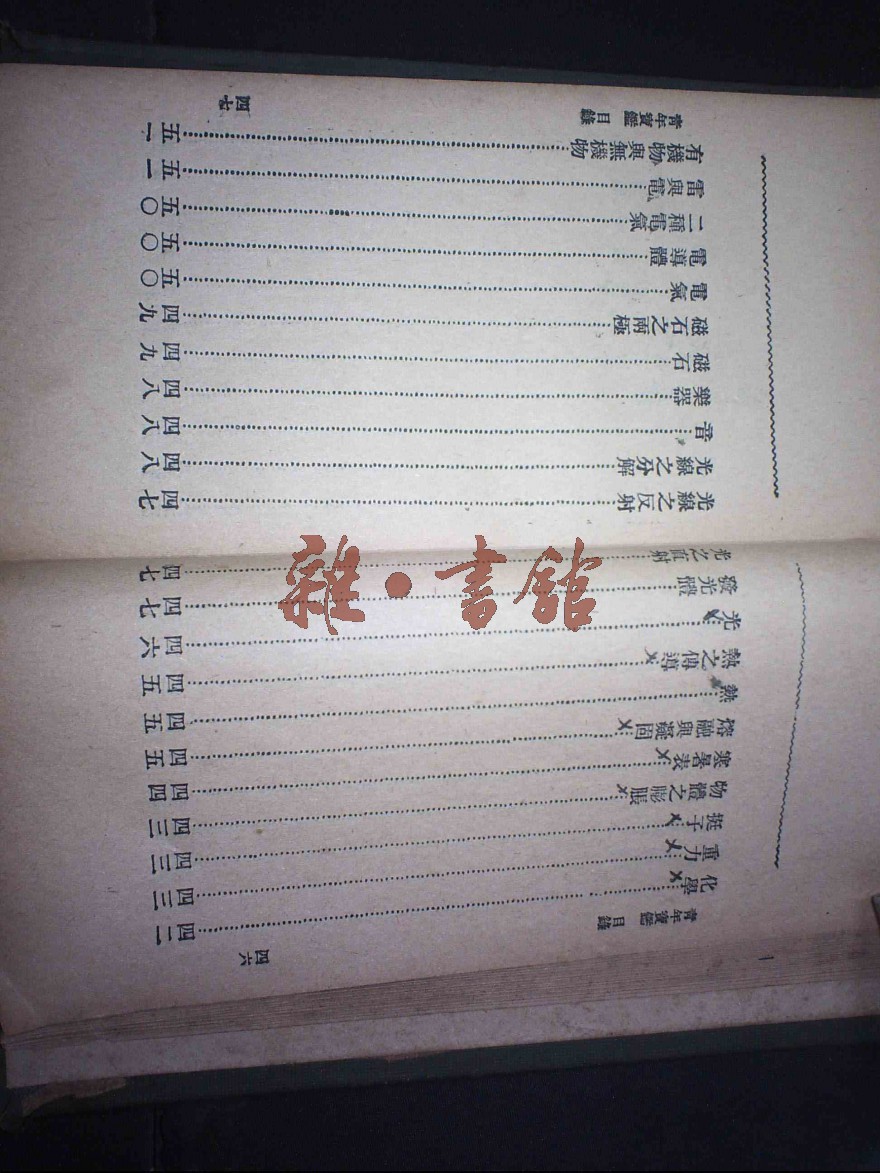 青年寶鑑 目錄
四六
化學……四二
重力……四三
挺子……四三
物體之膨脹……四三
寒暑表……四四
熔融與凝固……四五
熱……四五
熱之傳導……四五
光……四六
發光體……四七
光之直射……四七
光線之反射……四七
光線之分解……四八
音……四八
樂器……四八
磁石……四九
磁石之兩極……四九
電氣……五〇
電導體……五〇
二種電氣……五〇
雷與電……五一
有機物與無機物……五一
青年寶鑑 目錄
四七
雜·書館